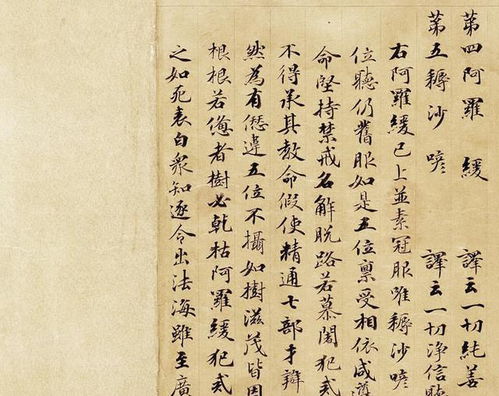 第四阿羅緩 譯云一切純善
第五耨沙喭 譯云一切淨信聽
右阿羅緩已上並素冠服唯耨沙喭
位聽仍舊服如是五位稟受相依咸遵
命堅持禁戒名解脫路若慕闍犯戒
不得承其教命假使精通七部才辯
然為有僁違五位不攝如樹滋茂皆因
根根若憊者樹必乹枯阿羅緩犯戒
之如死表白衆知逐令出法海雖至廣